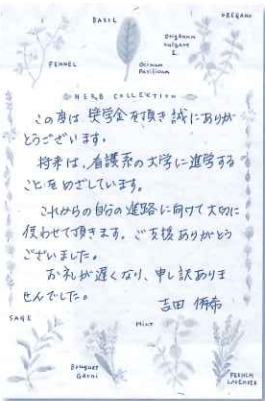 BASIL
OREGANO
Origanum
vulgare
L
FENNEL
Ocimum
Basilicum
HERB COLLECTION
この度は 奨学金を頂き 誠にありが
とうございます。
将来は、看護系の大学に進学する
ことをめざしています。
これからの自分の進路に向けて大切に
使わせて頂きます。ご支援ありがとう
ございました。
お礼が遅くなり、申し訳ありま
せんでした。
吉田 侑希
SAGE
Mint
Bouquet
Garni
FRENCH
LAVENDER